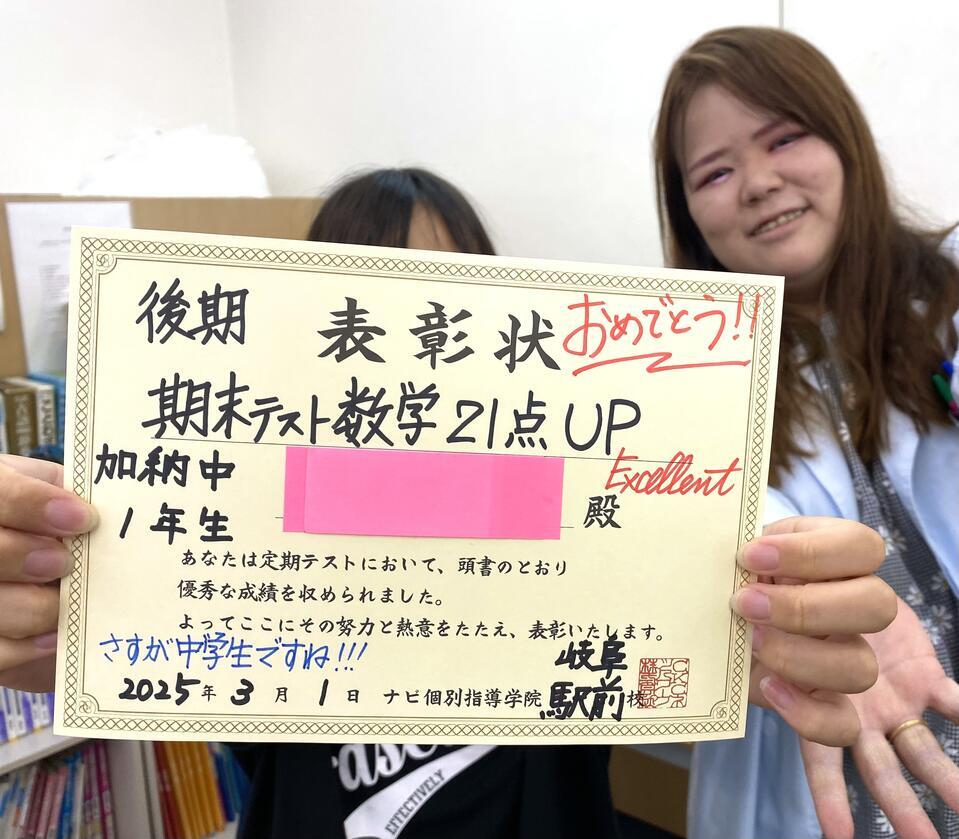 後期 表彰状 おめでとう!!
期末テスト数学21点UP
加納中
1年生 殿 Excellent
あなたは定期テストにおいて、頭書のとおり
優秀な成績を収められました。
よってここにその努力と熱意をたたえ、表彰いたします。
さすが中学生ですね!!!
岐阜
2025年3月1日 ナビ個別指導学院 駅前校
EFFECTIVELY